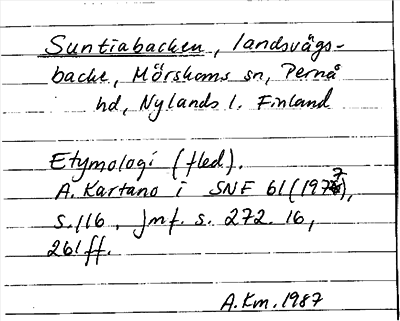 Suntiabacken, landsvägs-
backe, Mörskoms sn, Pernå
hd, Nylands l. Finland
Etymologi (fled).
A. Kartano i SNF 61 (1977),
s. 116, jmf. s. 272. 16,
261 ff.
A.Km. 1987